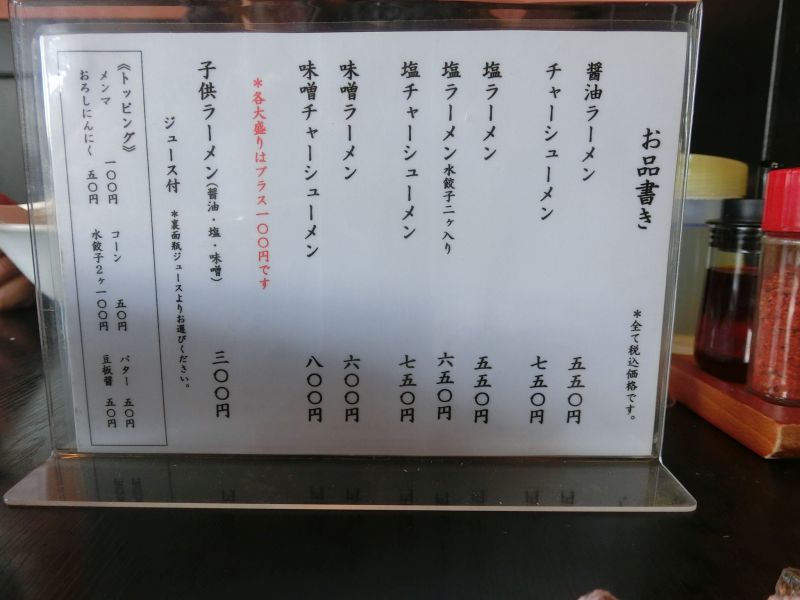 お品書き
＊全て税込価格です。
醤油ラーメン 五五〇円
チャーシューメン 七五〇円
塩ラーメン 五五〇円
塩ラーメン水餃子二ヶ入り 六五〇円
塩チャーシューメン 七五〇円
味噌ラーメン 六〇〇円
味噌チャーシューメン 八〇〇円
＊各大盛りはプラス一〇〇円です
子供ラーメン(醤油・塩・味噌) 三〇〇円
ジュース付 ＊裏面瓶ジュースよりお選びください。
《トッピング》
メンマ 一〇〇円 コーン 五〇円 バター 五〇円
おろしにんにく 五〇円 水餃子2ヶ一〇〇円 豆板醤 五〇円